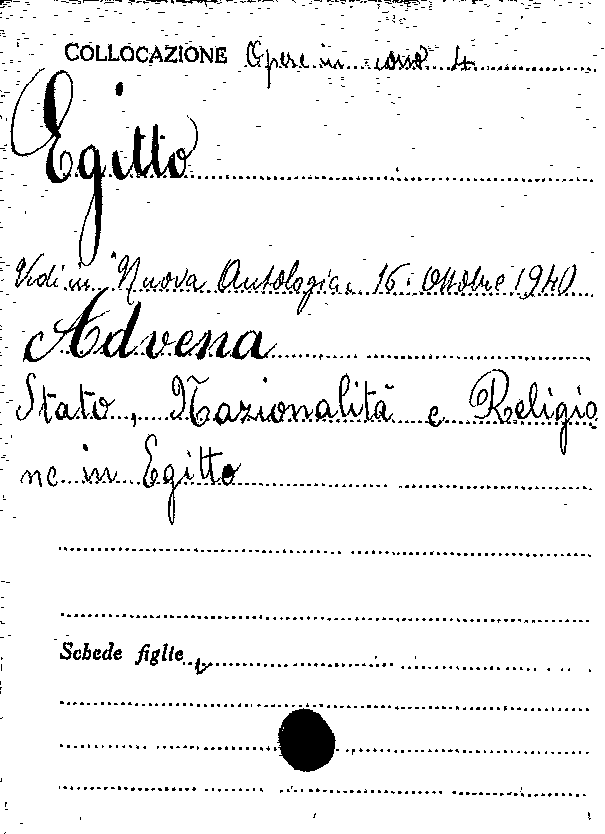 COLLOCAZIONE Opere in corso 4
Egitto
Vedi in "Nuova Antologia" 16 Ottobre 1940
Advena
Stato, Nazionalità e Religio
ne in Egitto
Schede figlie